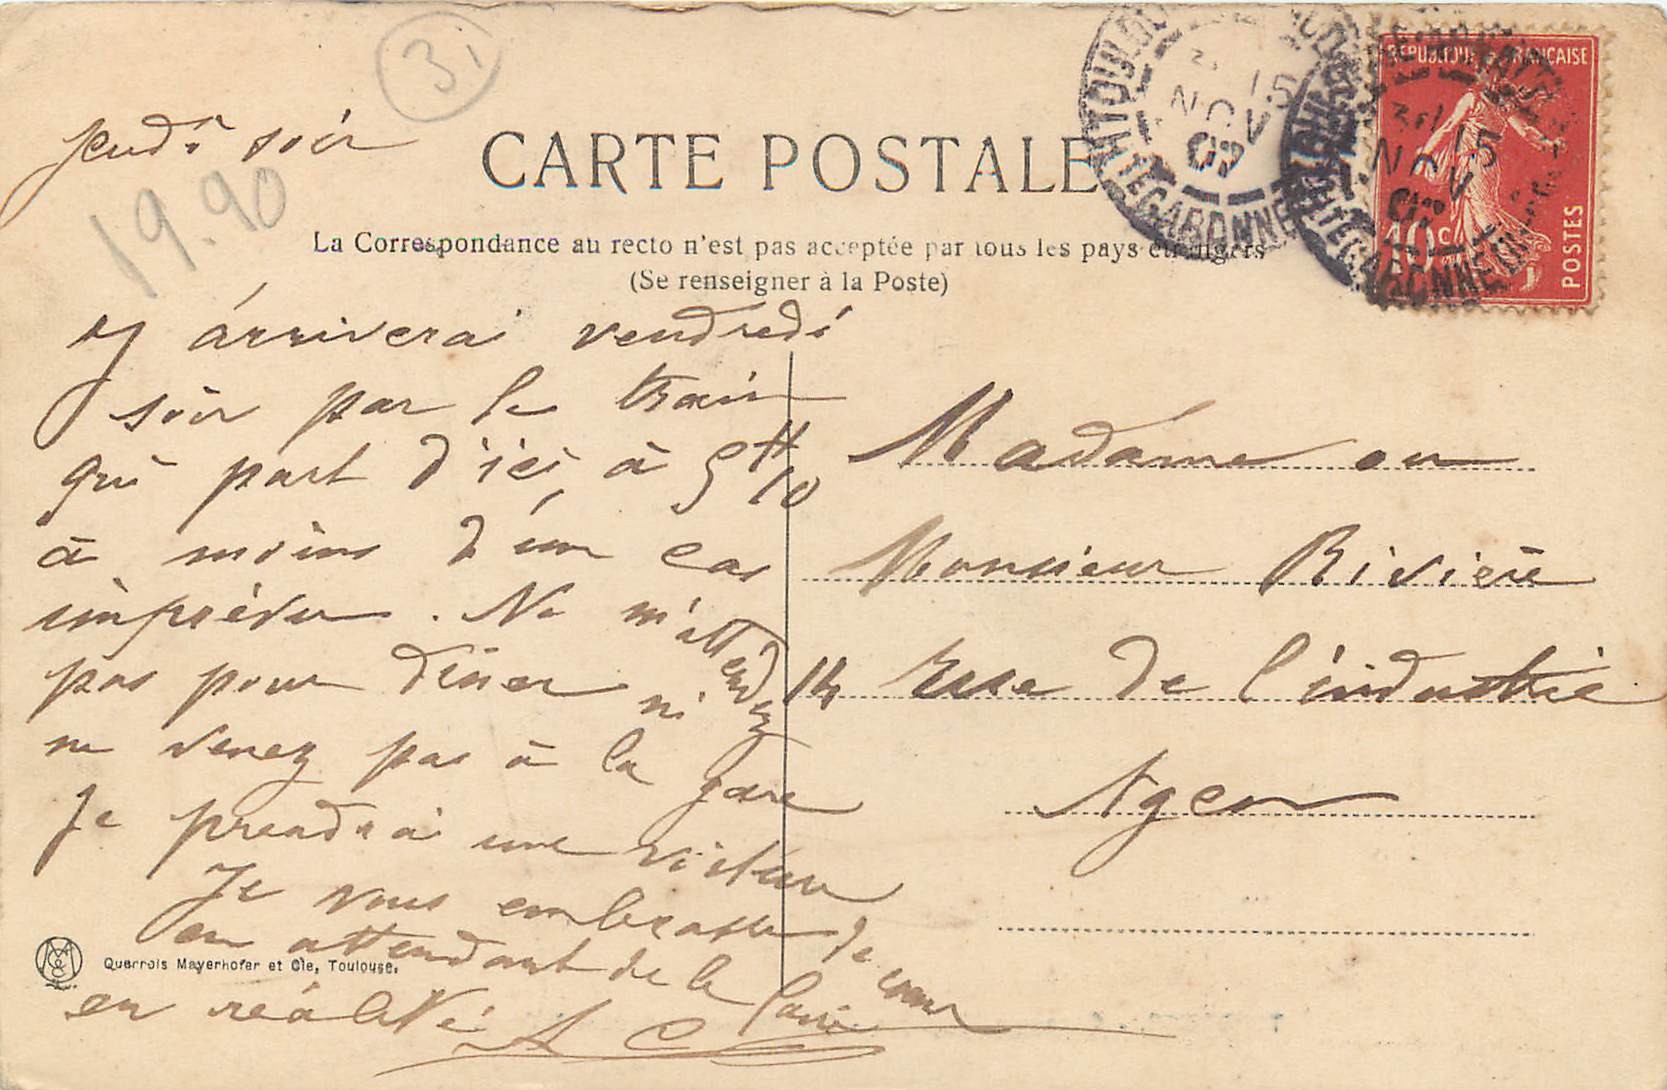 31
Jeudi soir
19.90
CARTE POSTALE
La Correspondance au recto n'est pas acceptée par tous les pays étrangers
(Se renseigner à la Poste)
TOULOUSE
HTE GARONNE
15
NOV
07
REPUBLIQUE FRANÇAISE
10c
POSTES
arriverai vendredi
soir par le train
qui part d'ici à 5H10
à moins d'un cas
imprévu. Ne m'attendez
pas pour diner ni
ne venez pas à la gare
Je prendrai une voiture
Je vous embrasse de cœur
en attendant de le faire
en réalité
AC
Madame ou
Monsieur Rivière
14 rue de l'industrie
Agen
Querrois Mayerhofer et Cie, Toulouse.